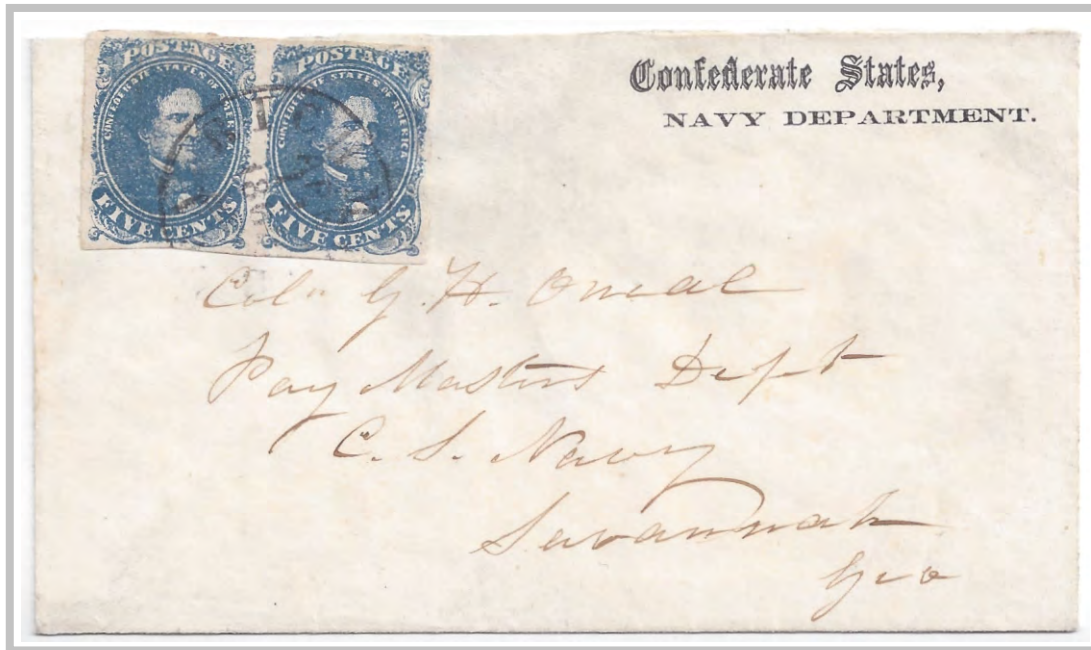 POSTAGE
CONFEDERATE STATES OF AMERICA
FIVE CENTS
POSTAGE
CONFEDERATE STATES OF AMERICA
FIVE CENTS
Confederate States,
NAVY DEPARTMENT.
G. H. Oneal
Pay Masters Dept
C. S. Navy
Savannah
Geo